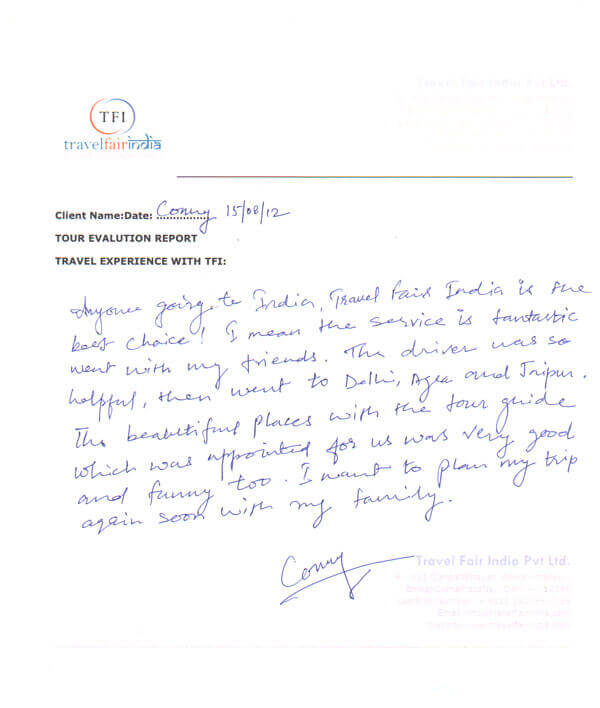 Travel Fair India Pvt Ltd.
TFI
travelfairindia
Client Name:Date: Conny 15/08/12
TOUR EVALUTION REPORT
TRAVEL EXPERIENCE WITH TFI:
Anyone going to India, Travel Fair India is the
best choice! I mean the service is fantastic
went with my friends. The driver was so
helpful, then went to Delhi, Agra and Jaipur.
The beautifull places with the tour guide
which was appointed for us was very good
and funny too. I want to plan my trip
again soon with my family.
Conny
Travel Fair India Pvt Ltd.